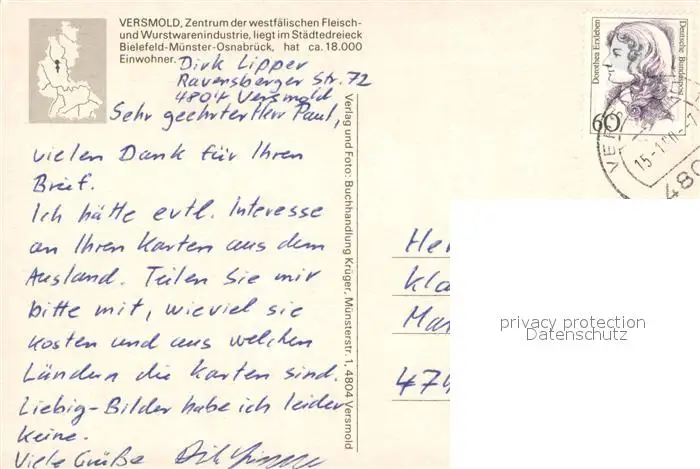 VERSMOLD, Zentrum der westfälischen Fleisch-
und Wurstwarenindustrie, liegt im Städtedreieck
Bielefeld-Münster-Osnabrück, hat ca. 18.000
Einwohner.
Dirk Lipper
Ravensberger Str. 72
4804 Versmold
Sehr geehrter Herr Paul,
vielen Dank für Ihren
Brief.
Ich hätte evtl. Interesse
an Ihren Karten aus dem
Ausland. Teilen Sie mir
bitte mit, wieviel sie
kosten und aus welchen
Ländern die Karten sind.
Liebig-Bilder habe ich leider
keine.
Viele Grüße
Verlag und Foto: Buchhandlung Krüger, Münsterstr. 1, 4804 Versmold
Dorothea Erxleben
Deutsche Bundespost
60
He
Kla
Ma
474
privacy protection
Datenschutz